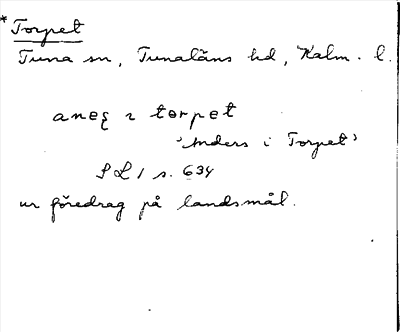 * Torpet
Tuna sn, Tunaläns hd, Kalm. l.
aneş ɩ tɵrpet
'Anders i Torpet'
SL 1 s. 634
ur föredrag på landsmål.